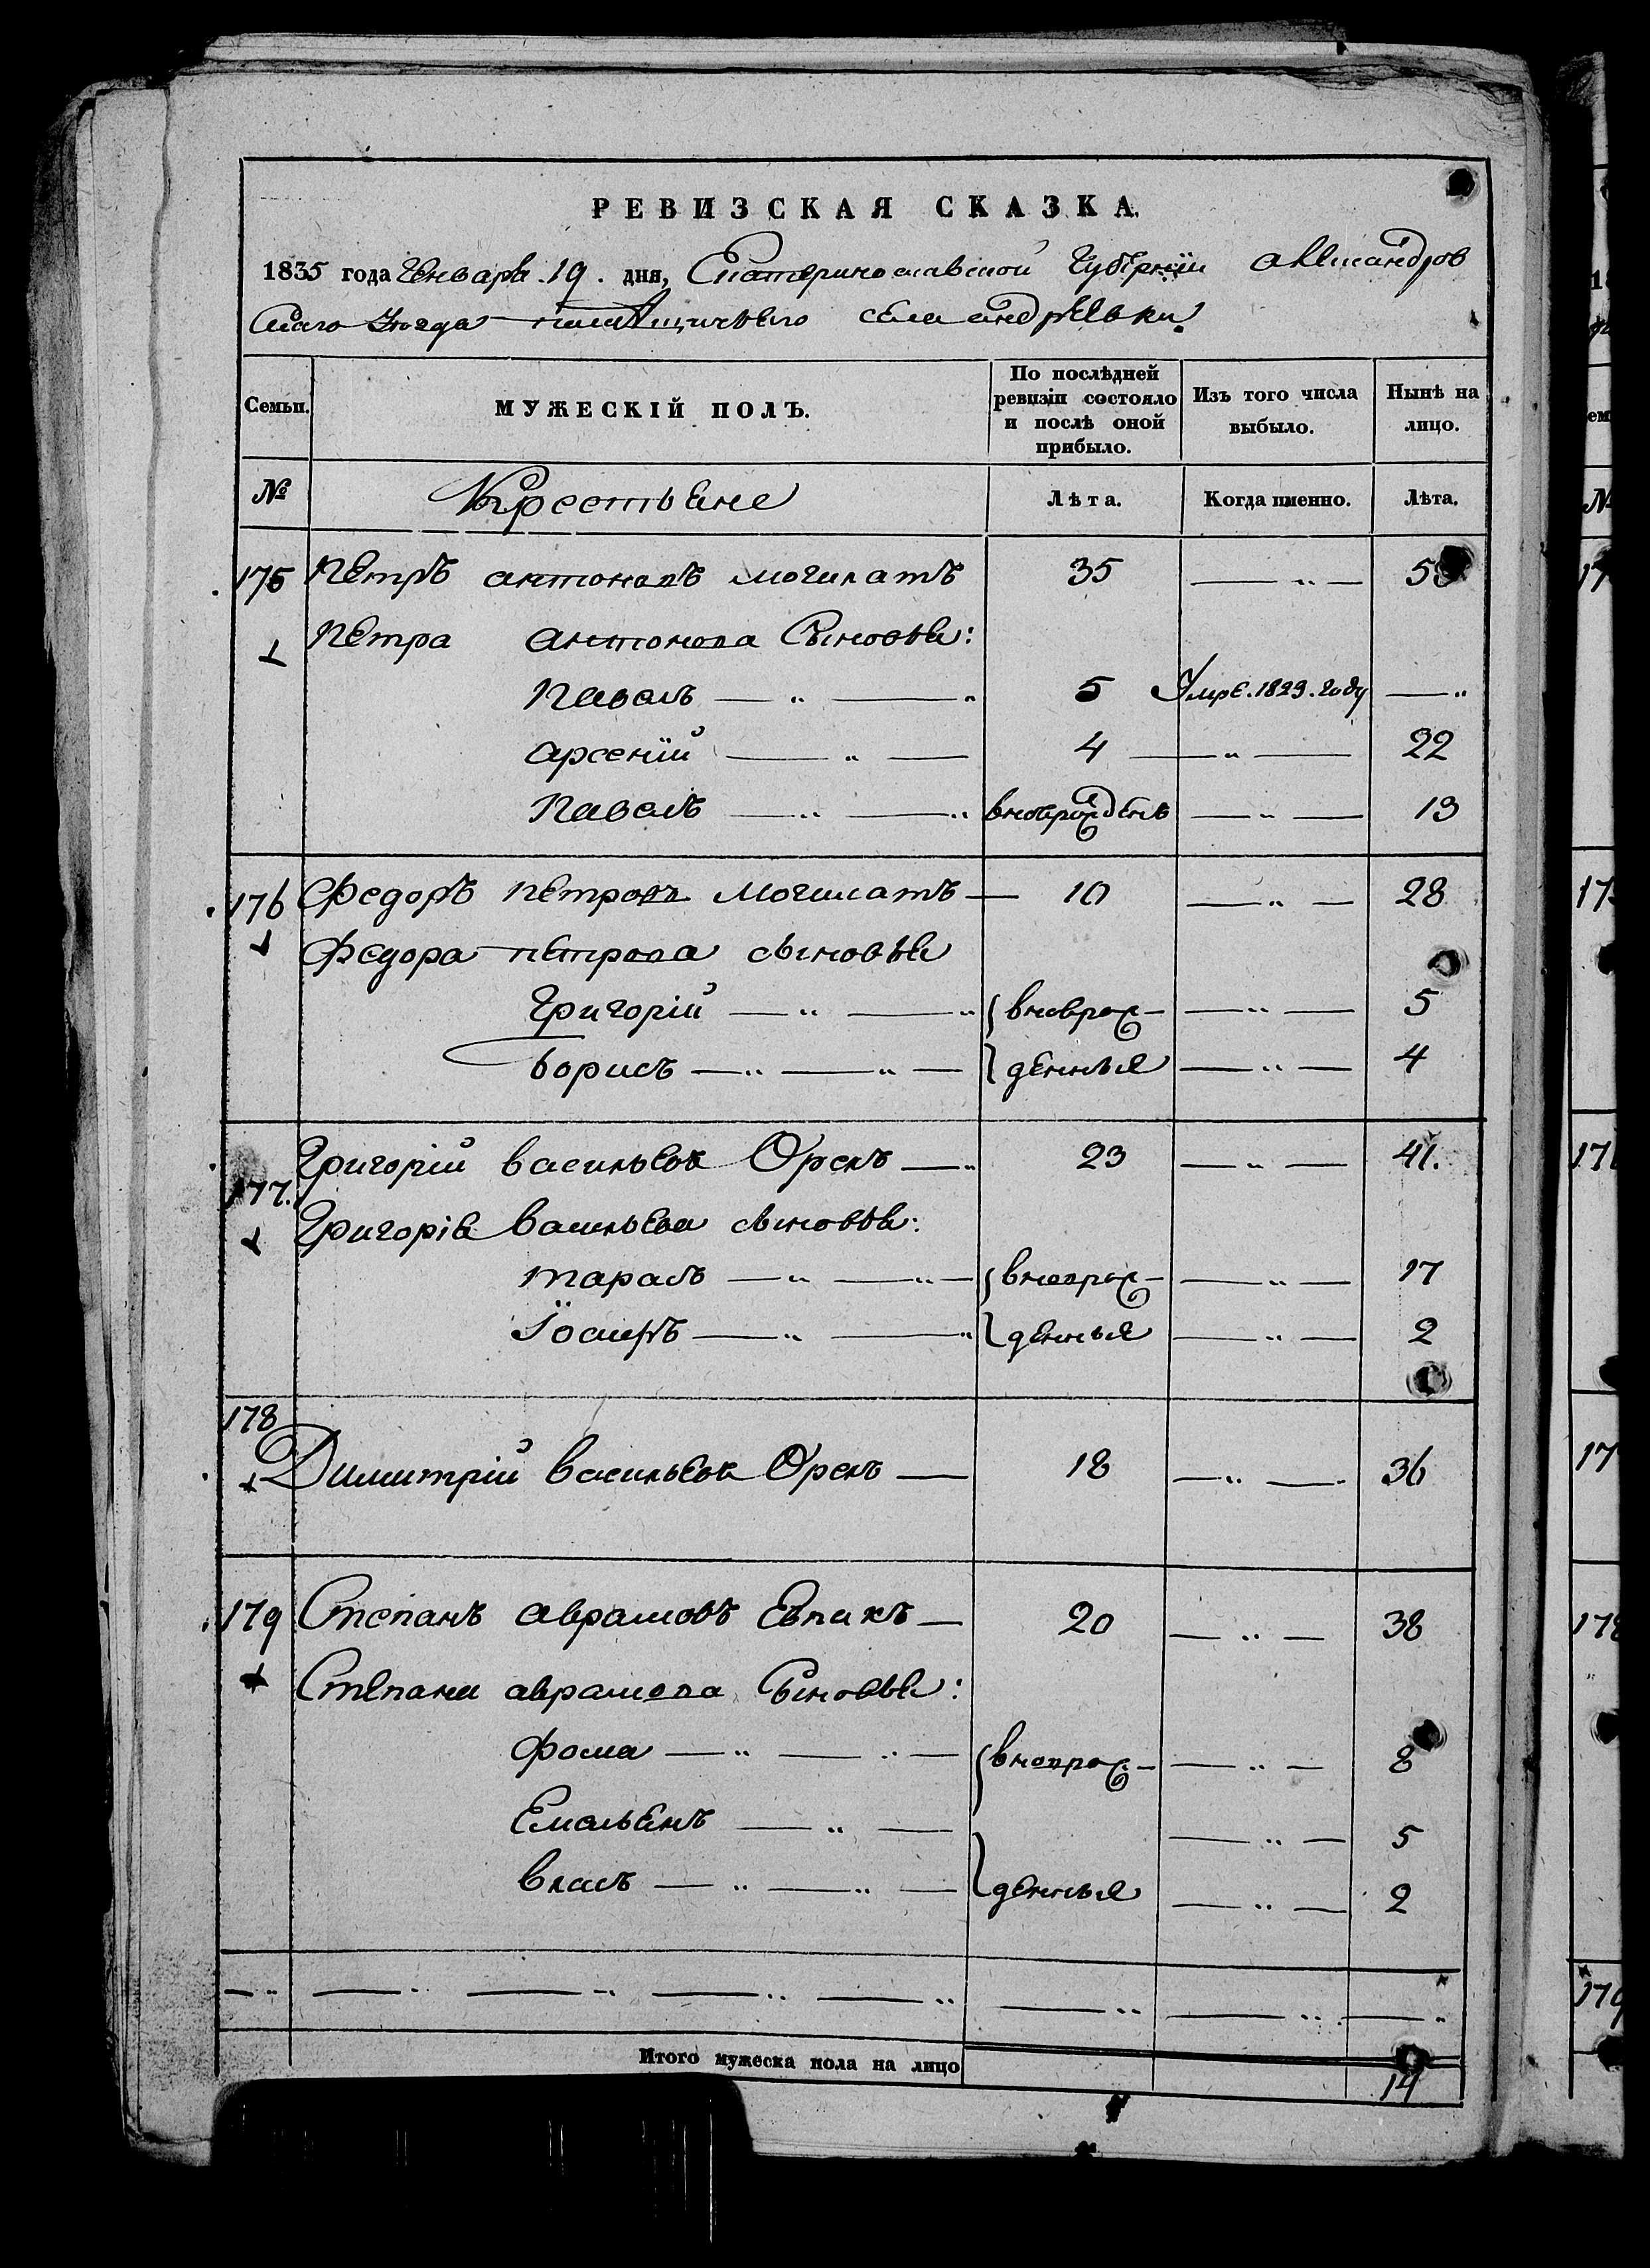 РЕВИЗСКАЯ СКАЗКА.
1835 года Генваря .19. дня, Екатеринославской Губернїи александров
скаго Уезда села андреЕвки
Семьи. МУЖЕСКІЙ ПОЛЪ. По послѣдней ревизіи состояло и послѣ оной прибыло. Изъ того числа выбыло. Нынѣ на лицо.
№ Крестьяне Лѣта. Когда именно. Лѣта.
175 Петръ антоновъ могилатъ 35 — „ — 5
Петра антонова Сыновья:
Павелъ — „ — „ 5 Умре. 1823. году — „
арсенїй — „ — 4 — „ — 22
Павелъ — „ — „ вновьрожденъ — „ — 13
176 Федоръ петровъ могилатъ — 10 — „ — 28
Федора петрова сыновья
Григорій — „ — „ вноврож- — „ — 5
борисъ — „ — „ — денныя — „ — 4
177. Григорій васильевъ Орелъ — „ 23 — „ — 41.
Григорія васильева сыновья:
тарасъ — „ — „ — вноврож- — „ — 17
Їосифъ — „ — „ денныя — „ — 2
178
Димитрій васильевъ Орелъ — 18 — „ — 36
179 Степанъ аврамовъ Евпакъ — 20 — „ — 38
Степана аврамова Сыновья:
фома — „ — „ — вноврож- — „ — 8
Емельянъ — „ — — „ — 5
власъ — „ — „ — денныя — „ — 2
— „ — „ — „ — „ — „ — „ — „ — „
Итого мужеска пола на лицо 14